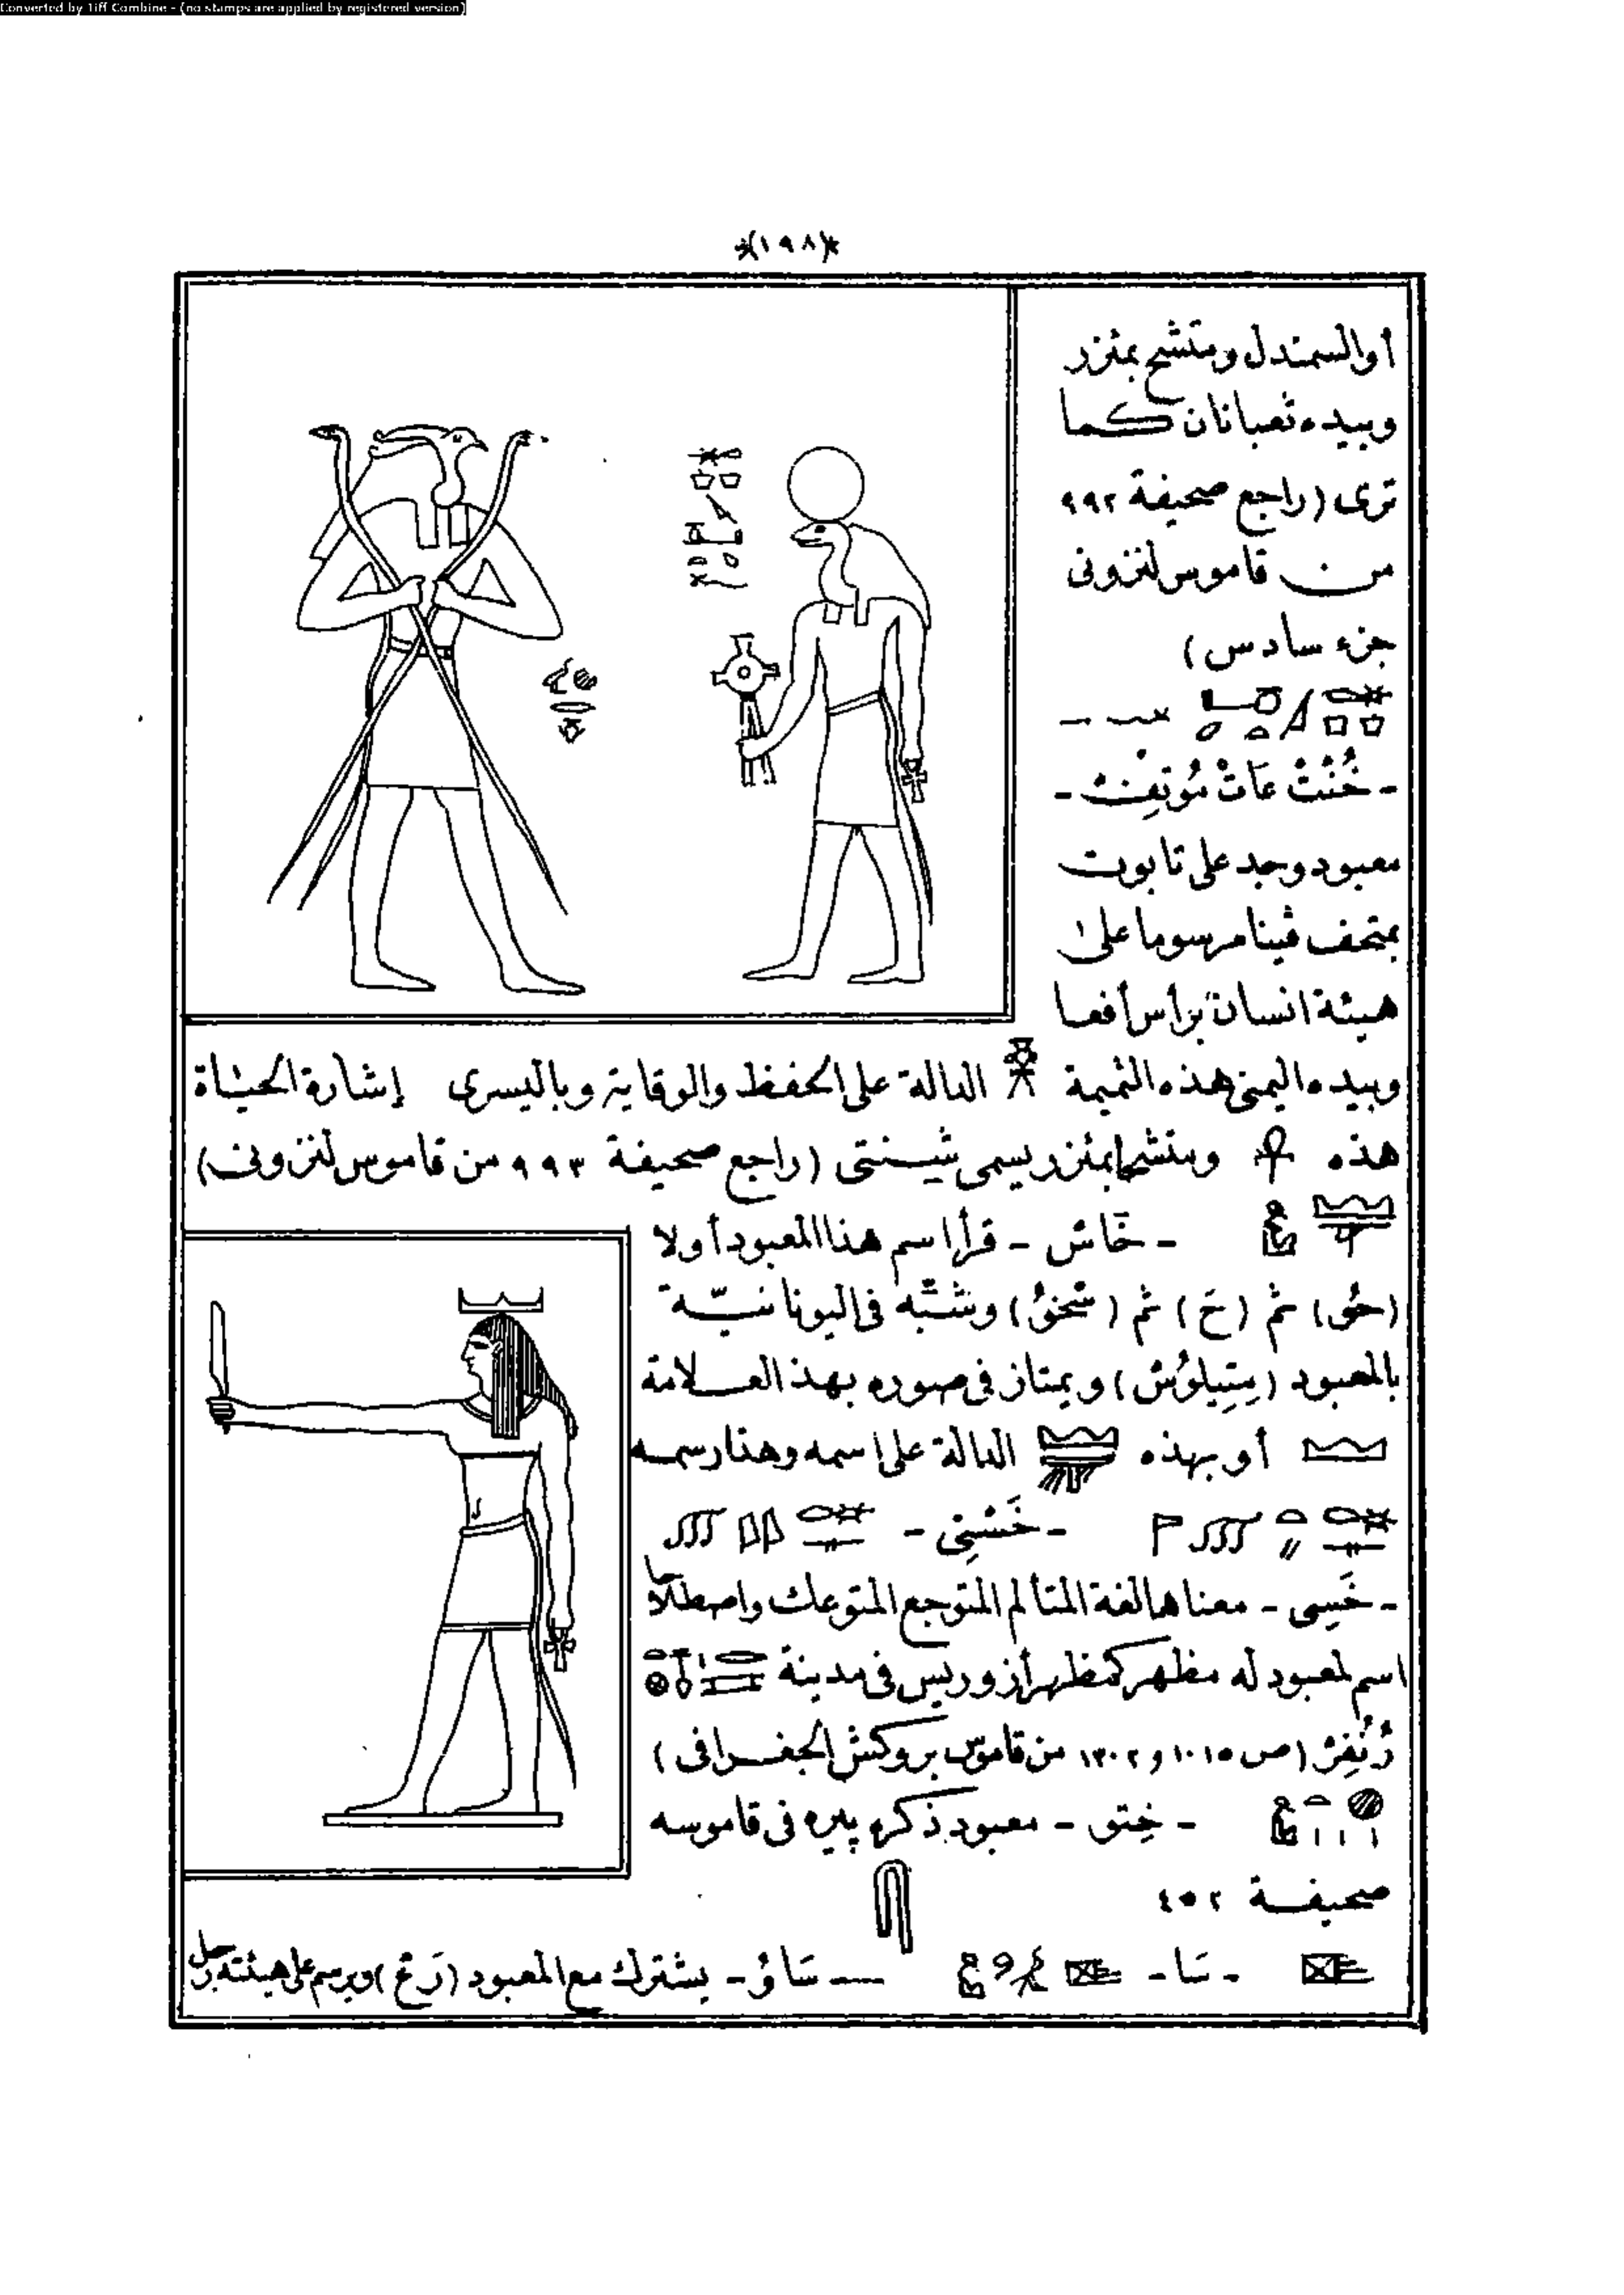 Converted by Tiff Combine - (no stamps are applied by registered version)
*(١٩٨)*
أو السمندل ومتشح بمئزر
وبيده ثعبانان كما
ترى (راجع صحيفة ٩٩٢
من قاموس لنزونى
جزء سادس)
- خُنْتْ عَاتْ مُوتِفِتْ -
معبود وجد على تابوت
بمتحف فينا مرسوما على
هيئة انسان برأس أفعا
وبيده اليمنى هذه التميمة الدالة على الحفظ والوقاية وباليسرى إشارة الحياة
هذه ومتشحا بمئزر يسمى شينتى (راجع صحيفة ٩٩٣ من قاموس لنزونى)
- خَاسْ - قرأ اسم هذا المعبود أولا
(حُو) ثم (خَ) ثم (سْخَنُ) وشبّه فى اليونانيّة
بالمعبود (سِتِيلوُسْ) ويمتاز فى صوره بهذ العلامة
أو بهذه الدالة على اسمه وهذا رسمه
- خَسْتِى -
- خَسِى - معناها لغة المتألم المتوجع المتوعك واصطلاحا
اسم لمعبود له مظهر كمظهر أزوريس فى مدينة
رُنُفِرْ (ص ١٠١٥ و ١٣٠٢ من قاموس بروكش الجغرافى)
- خِتو - معبود ذكره پيره فى قاموسه
صحيفة ٤٥٢
- سَا - — سَاوُ - يشترك مع المعبود (رَعْ) ويرسم على هيئته رجل